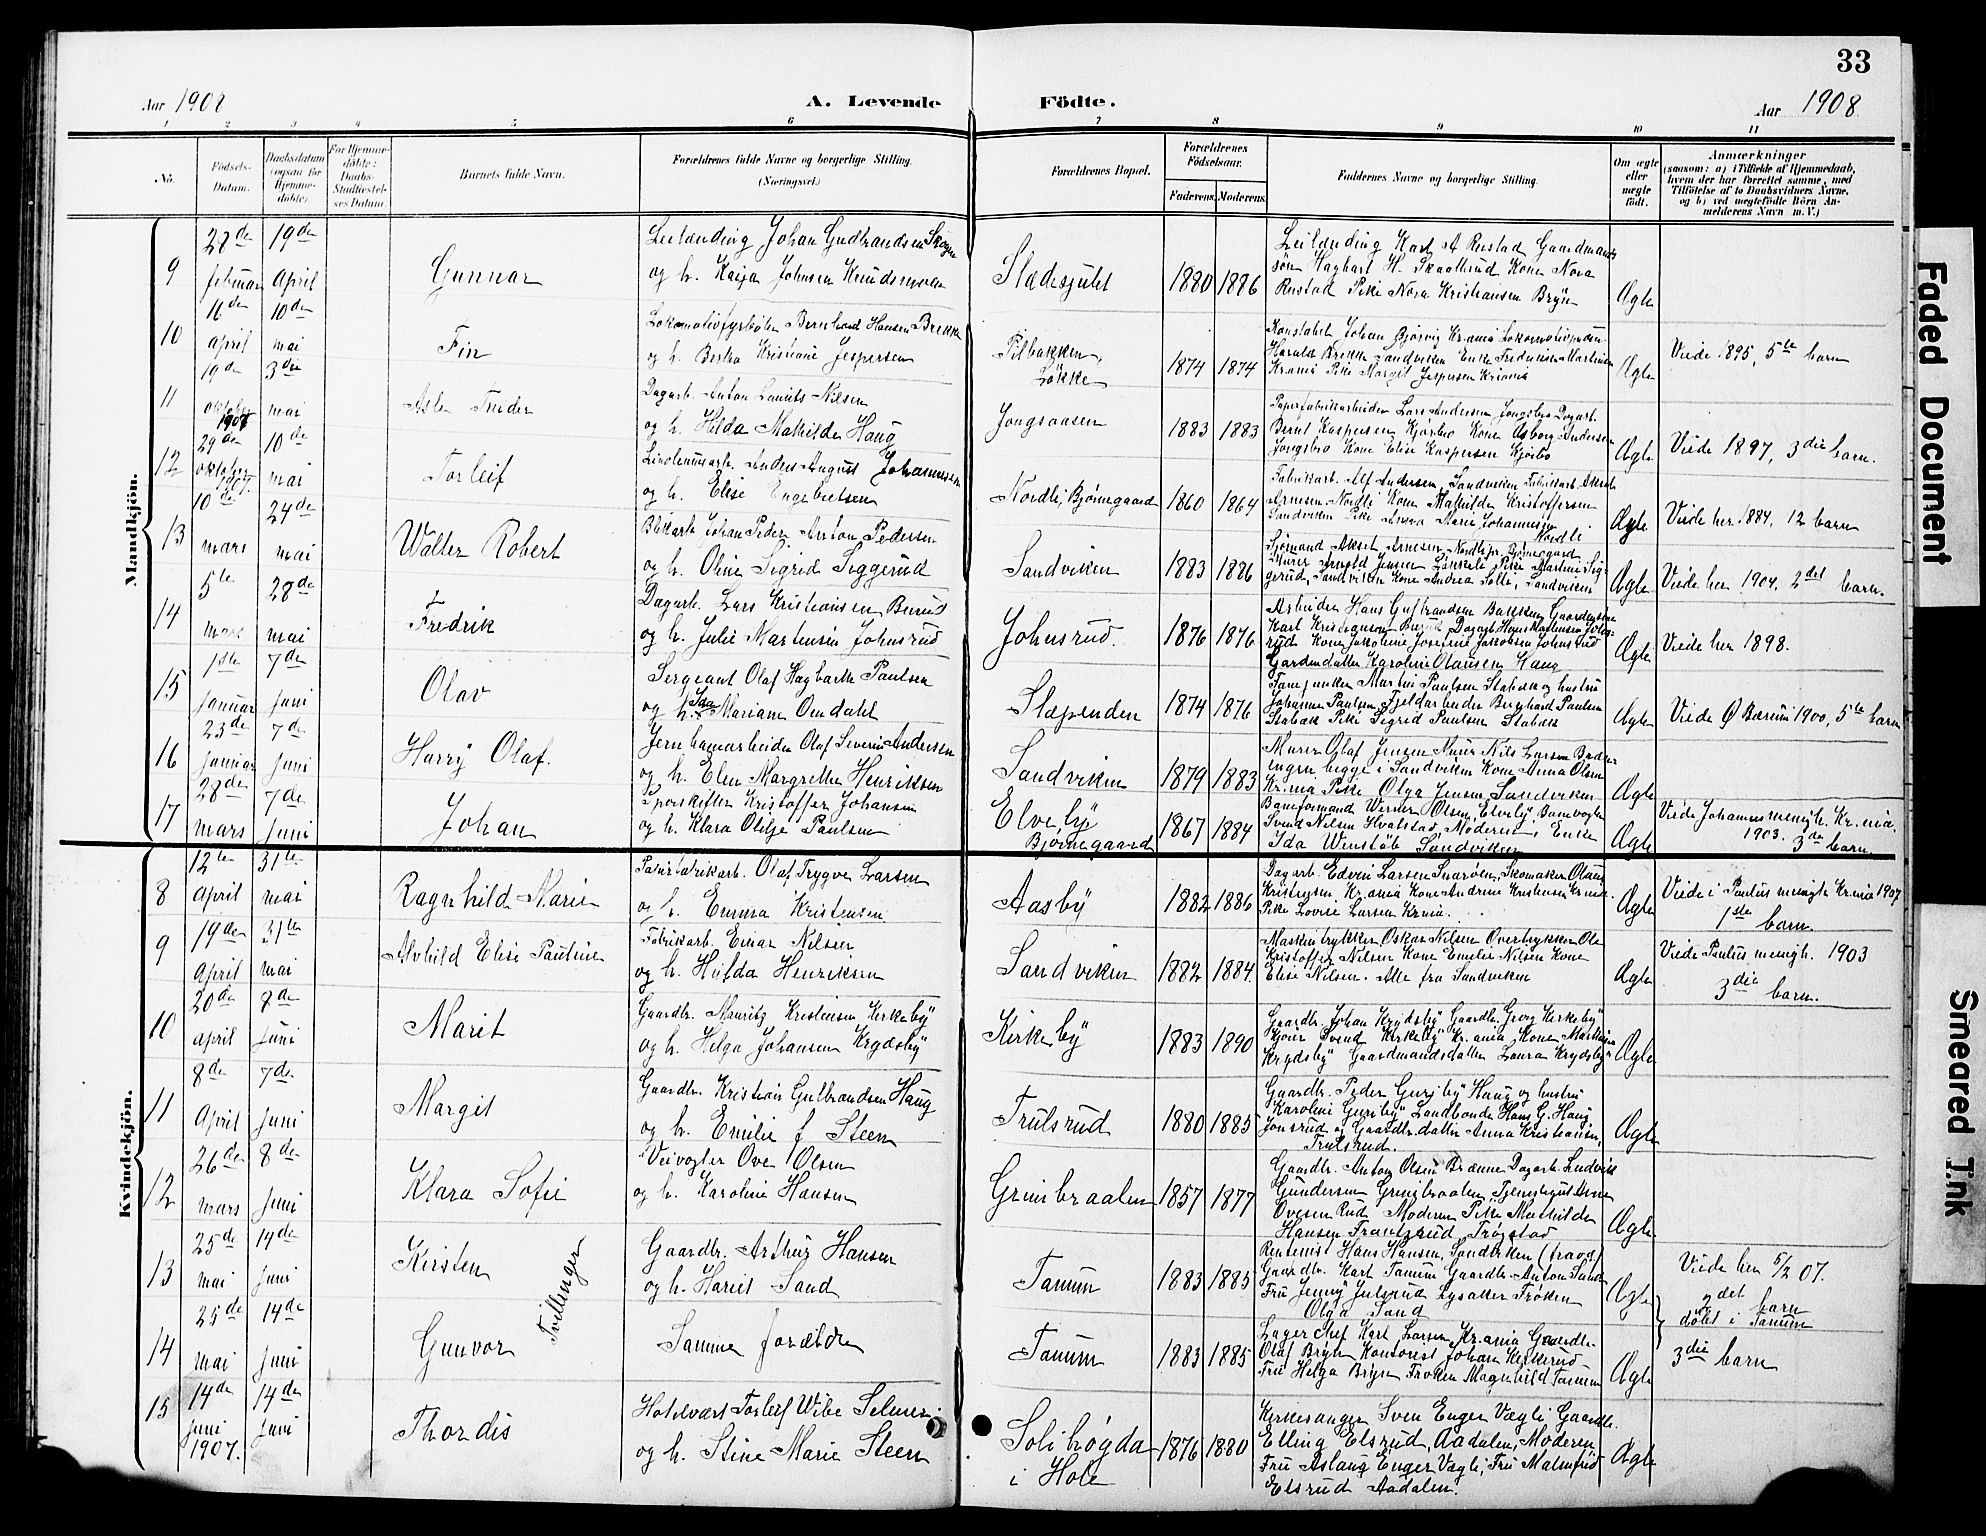 33
Aar 1908
A. Levende
Födte.
Aar 1908
1 2 3 4 5 6 7 8 9 10 11
No.
Födsels-
Datum.
Daabsdatum
(ogsaa for
Hjemme-
döbte).
For Hjemme-
döbte:
Daabs-
Stadfæstel-
ses Datum.
Barnets fulde Navn.
Forældrenes fulde Navne og borgerlige Stilling.
(Næringsvei.)
Forældrenes Bopæl.
Forældrenes
Födselsaar.
Faderens.
Moderens.
Faddernes Navne og borgerlige Stilling.
Om ægte
eller
uægte
födt.
Anmærkninger
(saasom: a) i Tilfælde af Hjemmedaab,
hvem der har forrettet samme, med
Tilföielse af to Daabsvidners Navne,
og b) ved uægtefödte Börn An-
melderens Navn m. V.)
Mandkjön.
9
28de
februar
19de
April
Gunnar
Leilænding Johan Gudbrandsen Skogen
og h. Kaja Johnsen
1880 1886
Leilænding Karl A Rustad Gaardmands
søn Hagbart H. Kone Nora
Rustad Pike Nora Kristiansen Bryn
Ægte
10
16de
april
10de
mai
Fin
Lokomotivfyrbøter Bernhard Hansen Brekke
og h. Berta Kristiane Jespersen
Pilbakken,
Løkke
1874 1874
Konstabel Johan Bjørvig Kr.ania
Harald Brekke Sandviken Enke Fredrikke Martinsen
Krania Pike Margit Jespersen Krania
Ægte
Viede 1895, 5te barn
11
19de
oktober
1907
3die
mai
Dagarb. Anton Laurits Nilsen
og h. Hilda Mathilde Haug
Jongsaasen
1883 1883
Papirfabrikarbeider Lars Andersen Jongsbro Dagarb.
Bernt Kaspersen Kjørbo Kone Asborg Andersen
Jongsbro Kone Elise Kaspersen Kjørbo
Ægte
Viede 1897, 3die barn.
12
29de
oktober
1907.
10de
mai
Torleif
Linoleumsarb. Anders August Johannessen
og h. Elise Engebretsen
Nordli, Bjørnegaard
1860 1864
Fabrikarb. Alf Andersen, Sandviken Fabrikarb. Aksel
Arnesen Nordli Kone Mathilde Kristoffersen
Sandviken Pike Anna Marie Johannesen
Nordli
Ægte
Viede her 1884, 12 barn
13
10de
mars
24de
mai
Walter Robert
Blikarb. Johan Peder Anton Pedersen
og h. Oline Sigrid Seggerud
Sandviken
1883 1886
Sjømand Aksel Arnesen Nordli pr. Bjørnegaard
Murer Arnold Jensen Løkkeli Pike Martine Seg-
gerud, Sandviken Kone Andrea Solli, Sandviken
Ægte
Viede her 1904, 2det barn.
14
5te
mars
28de
mai
Fredrik
Dagarb. Lars Kristiansen Burud
og h. Julie Martensin Johnsrud
Johnsrud.
1876 1876
Arbeider Hans Gulbrandsen Bakken Gaardeier
Karl Kristiansen Burud Dagarb. Hans Martensen Johns-
rud Kone Jakobine Josefine Jakobsen Johnsrud
Gardmdatter Karoline Olausen Haug
Ægte
Viede her 1898.
15
1ste
Januar
7de
Juni
Olav
Sergeant Olaf Hagbarth Paulsen
og h. Ida Mariane Omdahl
Slæpenden
1874 1876
Fanejunker Martin Paulsen Stabæk og hustru
Johanne Paulsen Fjeldarbeider Berghard Paulsen
Stabæk Pike Sigrid Paulsen Stabæk
Ægte
Viede Ø Bærum 1900, 5te barn
16
23de
Januar
7de
Juni
Harry Olaf.
Jernbanearbeider Olaf Severin Andersen
og h. Elen Margrethe Henriksen
Sandviken
1879 1883
Murer Olaf Jensen Murer Nils Larsen Bader-
engen begge i Sandviken Kone Anna Olsen
Kr.nia Pike Olga Jensen Sandviken
Ægte
17
28de
mars
7de
Juni
Johan
Sporskifter Kristoffer Johansen
og h. Klara Otilje Paulsen
Elveby
Bjørnegaard
1867 1884
Baneformand Werner Olsen, Elveby, Banevogter
Svend Nilsen Hvalstad, Moderen, Enke
Ida Winstöb Sandviken
Ægte
Viede Johannes menigh. Kr.nia.
1903. 3de barn.
Kvindekjön.
8
12te
April
31te
mai
Ragnhild Marie
Papirfabrikarb. Olaf Trygve Larsen
og h. Emma Kristensen
Aasby
1882 1886
Dagarb. Edvin Larsen Snarøen, Skomaker Olaus
Kristensen Kr.ania Kone Andrine Kristensen Krania
Pike Lovise Larsen Krnia.
Ægte
Viede i Paulus menigh Kr.nia 1907
1ste barn
9
19de
April
31te
mai
Alvhild Elise Pauline
Fabrikarb. Einar Nilsen
og h. Hulda Henriksen
Sandviken
1882 1884.
Maskintrykker Oskar Nilsen Overtrykker Ole
Kristoffer Nilsen Kone Emelie Nilsen Kone
Elise Nilsen. Alle fra Sandviken
Ægte
Viede Paulus menigh. 1903
3die barn.
10
20de
april
8de
Juni
Marit
Gaardbr. Mauritz Kristensen Kirkeby
og h. Helga Johansen Krydsby
Kirkeby
1883 1890
Gaardbr Johan Krydsby Gaardbr. Georg Kirkeby
Kjører Svend Kirkeby Kr.ania Kone Mathilda
Krydsby Gaardmandsdatter Laura Krydsby
Ægte
11
8de
April
7de
Juni
Margit
Gaardbr. Kristian Gulbrandsen Haug
og h. Emilie f Steen
Trulsrud
1880 1885
Gaardbr. Peder Gursby Haug og hustru
Karoline Gursby Landbonde Hans G. Haug
Jonsrud og Gaardbr.datter Anna Kristiansen,
Trulsrud.
Ægte
12
26de
mars
8de
Juni
Klara Sofie
Veivogter Ove Olsen
og h. Karoline Hansen
Grinibraaten
1857 1877
Gaardbr. Anton Olsen Brænne Dagarb. Ludvik
Gundersen Grinibraaten, Tjenestegut Arne
Ovesen Rud Moderen Pike Mathilde
Hansen Frantzrud, Trøgstad
Ægte
13
25de
mai
14de
Juni
Kirsten
Tvillinger
Gaardbr. Arthur Hansen
og h. Hariet Sand
Tanum
1883 1885
Rentenist Hans Hansen, Sandviken (fravd)
Gaardbr. Karl Tanum Gaardbr. Anton Sand
Fru Jenny Julsrud Lysaker Frøken
Olga Sand
Ægte
Viede her 5/2 07.
2det barn
døbt i Tanum
14
25de
mai
14de
Juni
Gunvor
Samme forældre
Tanum
1883 1885
Lagerchef Karl Larsen, Kr.ania Gaardbr.
Olaf Bryn Kontorist Johan Kirkerud
Fru Helga Bryn Frøken Magnhild Tanum
Ægte
3die barn
15
14de
Juni
1907.
14de
Juni
Thordis
Hotelvært Torleif Wibe Selmer
og h. Stine Marie Steen
Solihøgda
i Hole
1876 1880
Kirkesanger Sven Enger Vægli Gaardbr.
Elling Elsrud, Aadalen, Moderen
Fru Aslaug Enger Vægli, Fru Malmfrid
Elsrud Aadalen.
Ægte
Faded Document
Smeared Ink